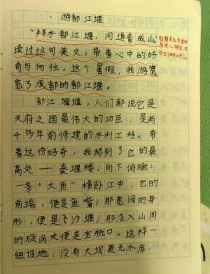 游都江堰
“拜水都江堰，问道青城山”
读过这句美文，带着心中的好
奇与向往，这个暑假，我游览
了成都的都江堰。
都江堰，人们都说它是
天府之国最伟大的功臣，是两
千多年前修建的水利工程。带
着这份好奇，我起到了它的最
高处——秦堰楼，向下俯瞰：
一条“大鱼”横卧江中，它的
前端，便是鱼嘴，那宽阔的身
形，便是飞沙堰，那注入山间
的漩涡天便是宝瓶口。这样一
组设施，没有大坝是无水库，